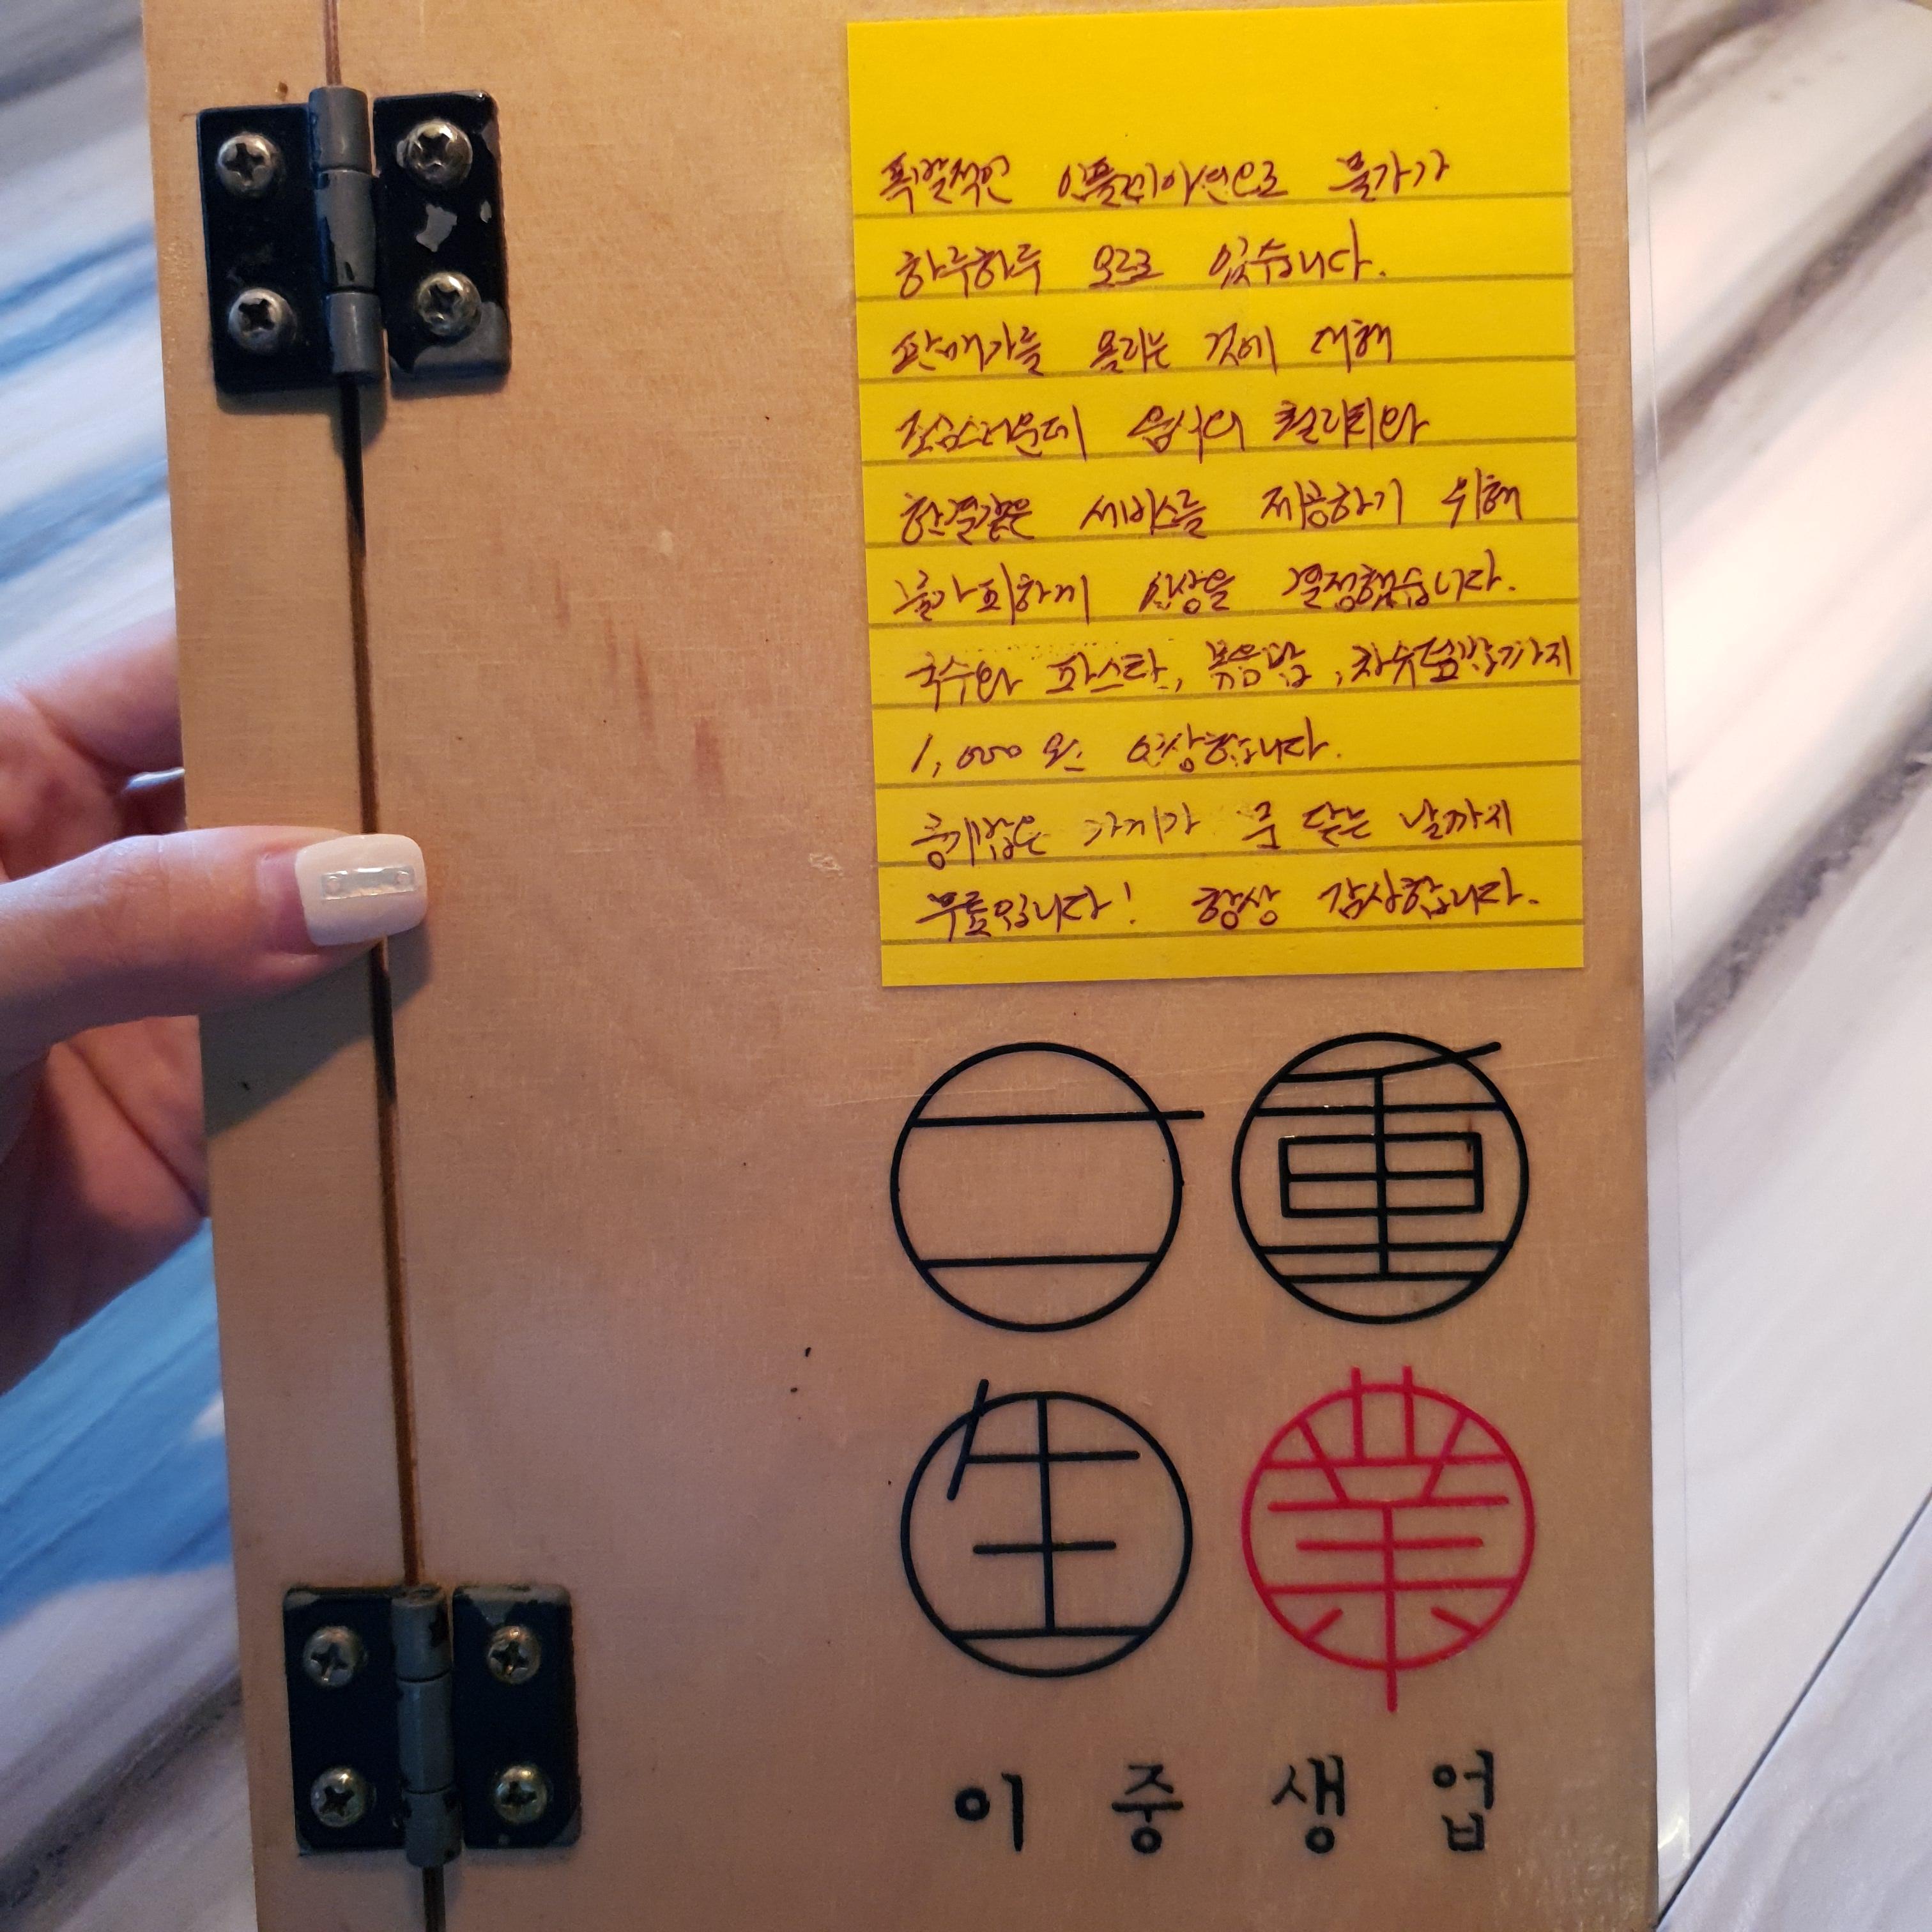 폭발적인 인플레이션으로 물가가
하루하루 오르고 있습니다.
판매가를 올리는 것에 대해
조심스러운데 음식의 퀄리티와
한결같은 서비스를 제공하기 위해
불가피하게 인상을 결정했습니다.
국수와 파스타, 볶음밥, 차슈덮밥까지
1,000원 인상합니다.
공기밥은 가게가 문 닫는 날까지
무료입니다! 항상 감사합니다.
二 重
生 業
이 중 생 업